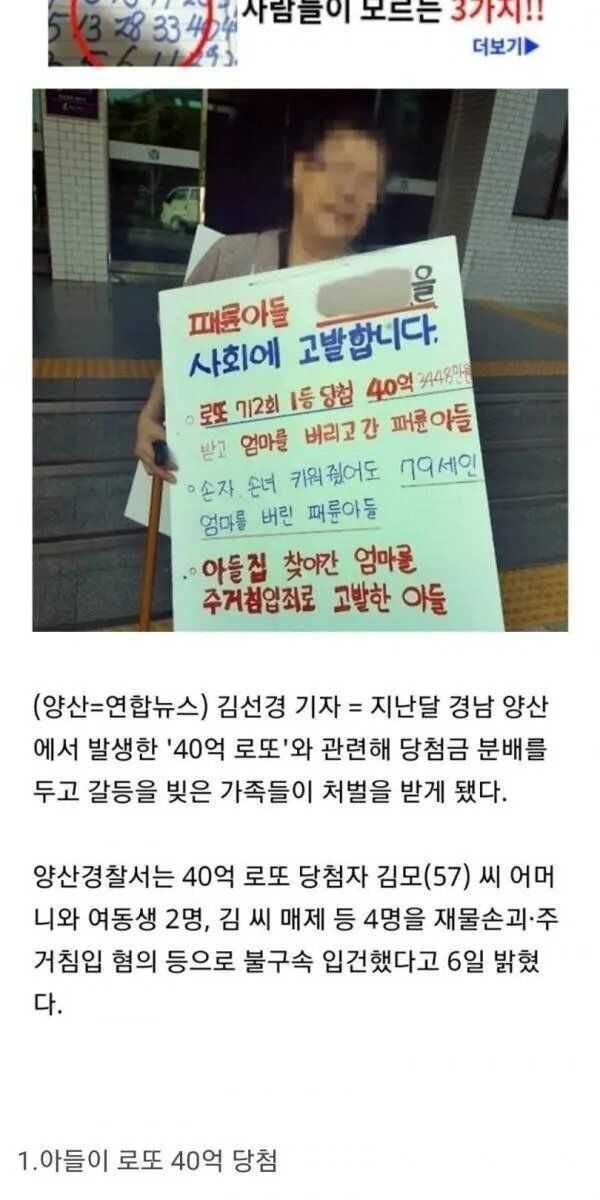 사람들이 모르는 3가지!!
더보기▶
5 13 28 33 40
패륜아들 을
사회에 고발합니다.
로또 712회 1등 당첨 40억 3448만원
받고 엄마를 버리고 간 패륜아들
손자 손녀 키워줬어도 79세인
엄마를 버린 패륜아들
아들집 찾아간 엄마를
주거침입죄로 고발한 아들
(양산=연합뉴스) 김선경 기자 = 지난달 경남 양산
에서 발생한 '40억 로또'와 관련해 당첨금 분배를
두고 갈등을 빚은 가족들이 처벌을 받게 됐다.
양산경찰서는 40억 로또 당첨자 김모(57) 씨 어머
니와 여동생 2명, 김 씨 매제 등 4명을 재물손괴·주
거침입 혐의 등으로 불구속 입건했다고 6일 밝혔
다.
1.아들이 로또 40억 당첨